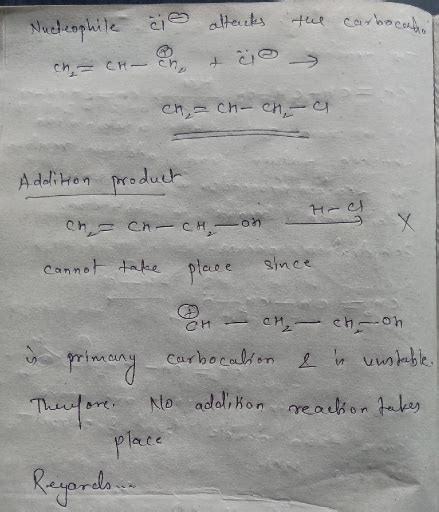 Nucleophile :Cl⊖ attacks the carbocatio
CH₂ = CH - CH₂⊕ + :Cl⊖ →
CH₂ = CH - CH₂ - Cl
Addition product
CH₂ = CH - CH₂ - OH H-Cl → X
cannot take place since
⊕CH - CH₂ - CH₂ - OH
is primary carbocation & is unstable.
Therefore, No addition reaction takes
place
Regards...